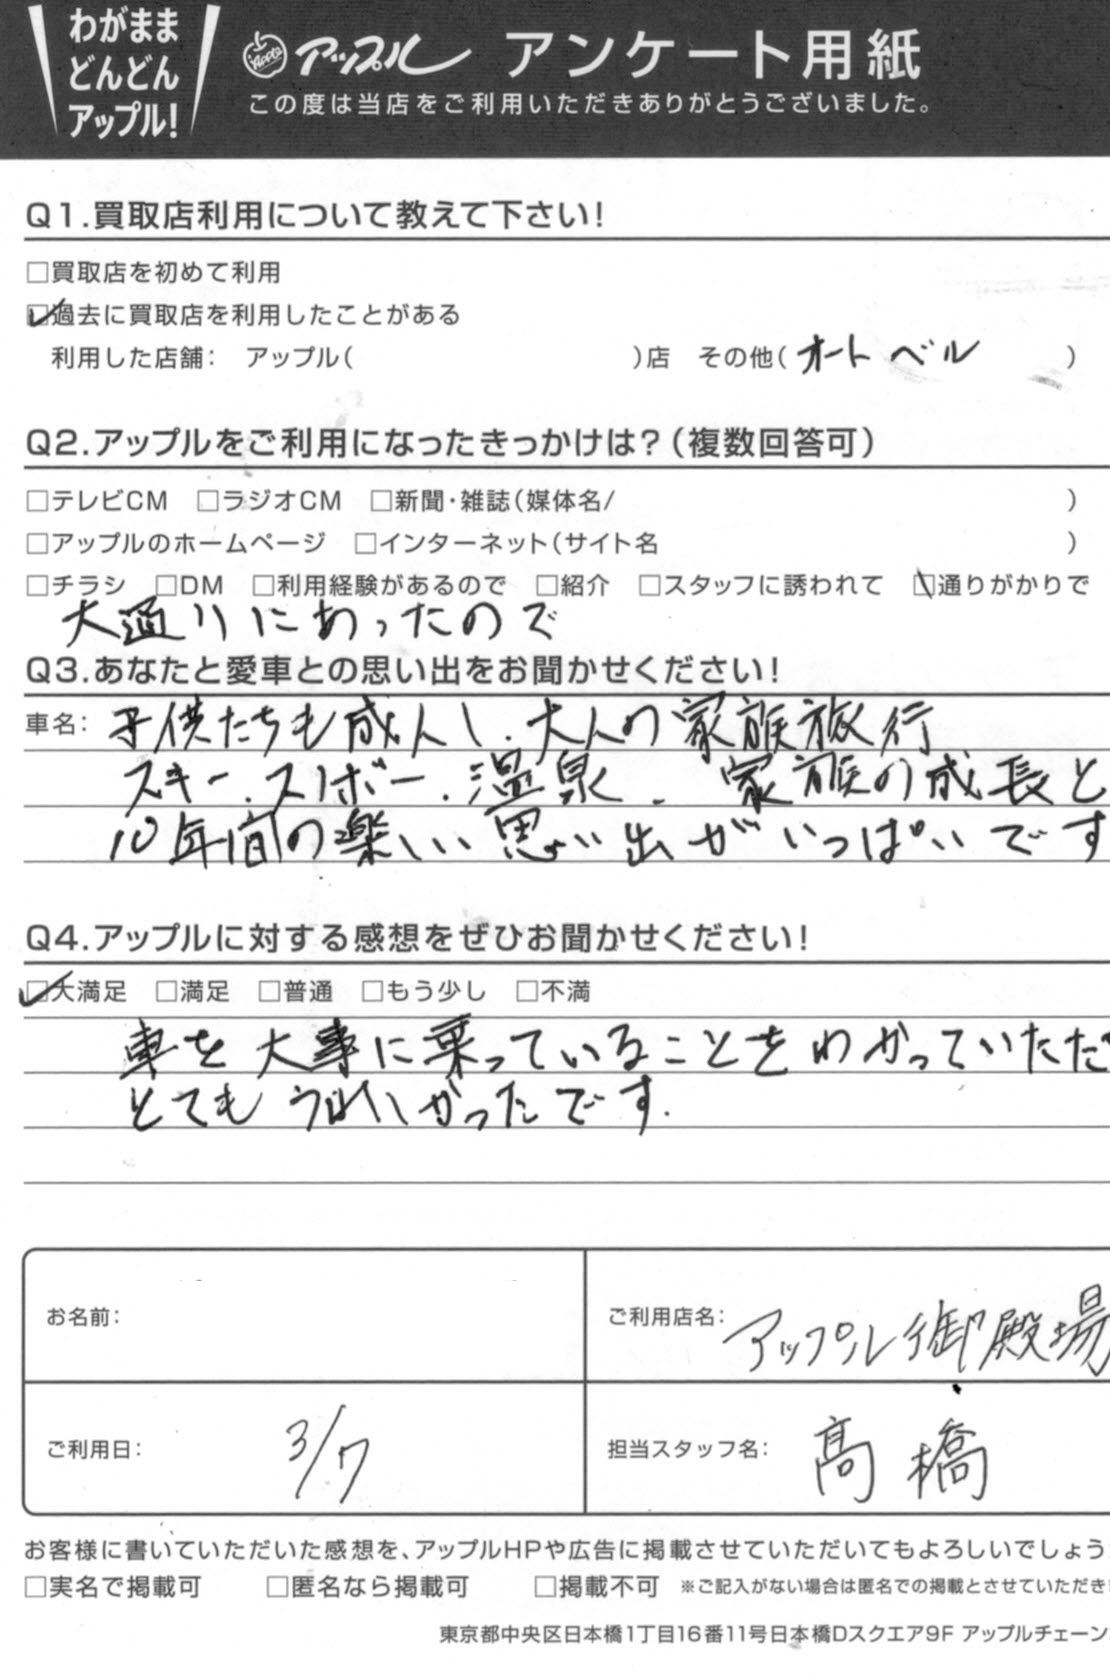 わがまま
どんどん
アップル!
Apple アップル アンケート用紙
この度は当店をご利用いただきありがとうございました。
Q1.買取店利用について教えて下さい!
□買取店を初めて利用
☑過去に買取店を利用したことがある
利用した店舗: アップル( )店 その他(オートベル)
Q2.アップルをご利用になったきっかけは?(複数回答可)
□テレビCM □ラジオCM □新聞・雑誌(媒体名/ )
□アップルのホームページ □インターネット(サイト名 )
□チラシ □DM □利用経験があるので □紹介 □スタッフに誘われて ☑通りがかりで
大通りにあったので
Q3.あなたと愛車との思い出をお聞かせください!
車名: 子供たちも成人し、大人の家族旅行
スキー、スノボー、温泉、家族の成長と
10年間の楽しい思い出がいっぱいです
Q4.アップルに対する感想をぜひお聞かせください!
☑大満足 □満足 □普通 □もう少し □不満
車を大事に乗っていることをわかっていただ
とてもうれしかったです.
お名前:
ご利用店名: アップル御殿場
ご利用日: 3/7
担当スタッフ名: 高橋
お客様に書いていただいた感想を、アップルHPや広告に掲載させていただいてもよろしいでしょう
□実名で掲載可 □匿名なら掲載可 □掲載不可 ※ご記入がない場合は匿名での掲載とさせていただき
東京都中央区日本橋1丁目16番11号日本橋Dスクエア9F アップルチェーン